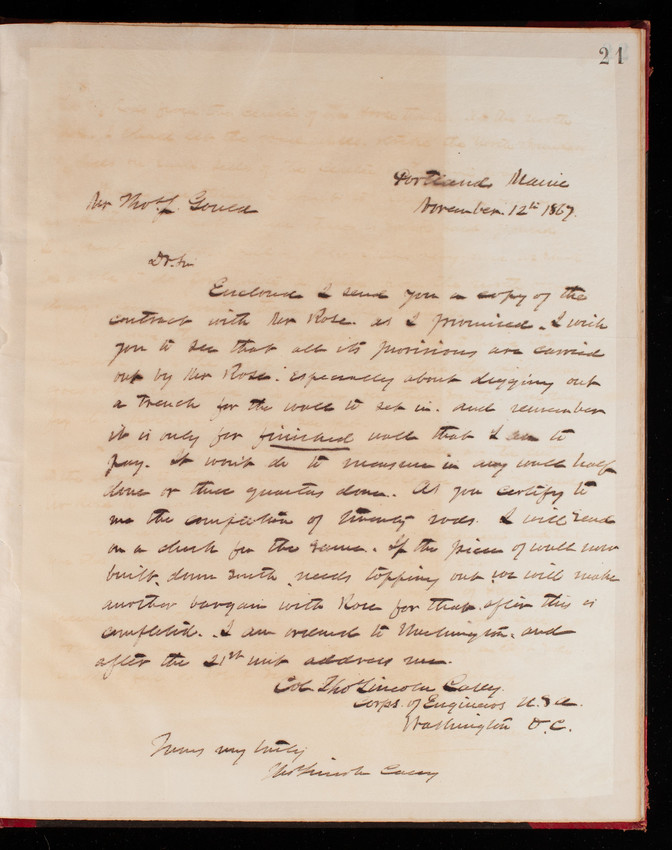 21
Portland, Maine
November 12th 1867.
Mr Thos J. Gould
Dr. Sir
Enclosed I send you a copy of the
contract with Mr Rose. as I promised. I wish
you to see that all its provisions are carried
out by Mr Rose. especially about digging out
a trench for the wall to set in. and remember
it is only for finished wall that I am to
pay. It wont do to measure in any wall half
done or three quarters done. As you certify to
me the completion of twenty rods. I will send
on a check for the same. If the piece of wall now
built, down south, needs topping out we will make
another bargain with Rose for that after this is
completed. I am ordered to Washington, and
after the 21st inst address me.
Col. Thos Lincoln Casey.
Corps. of Engineers U.S.A.
Washington D.C.
Yours very truly
Thos Lincoln Casey